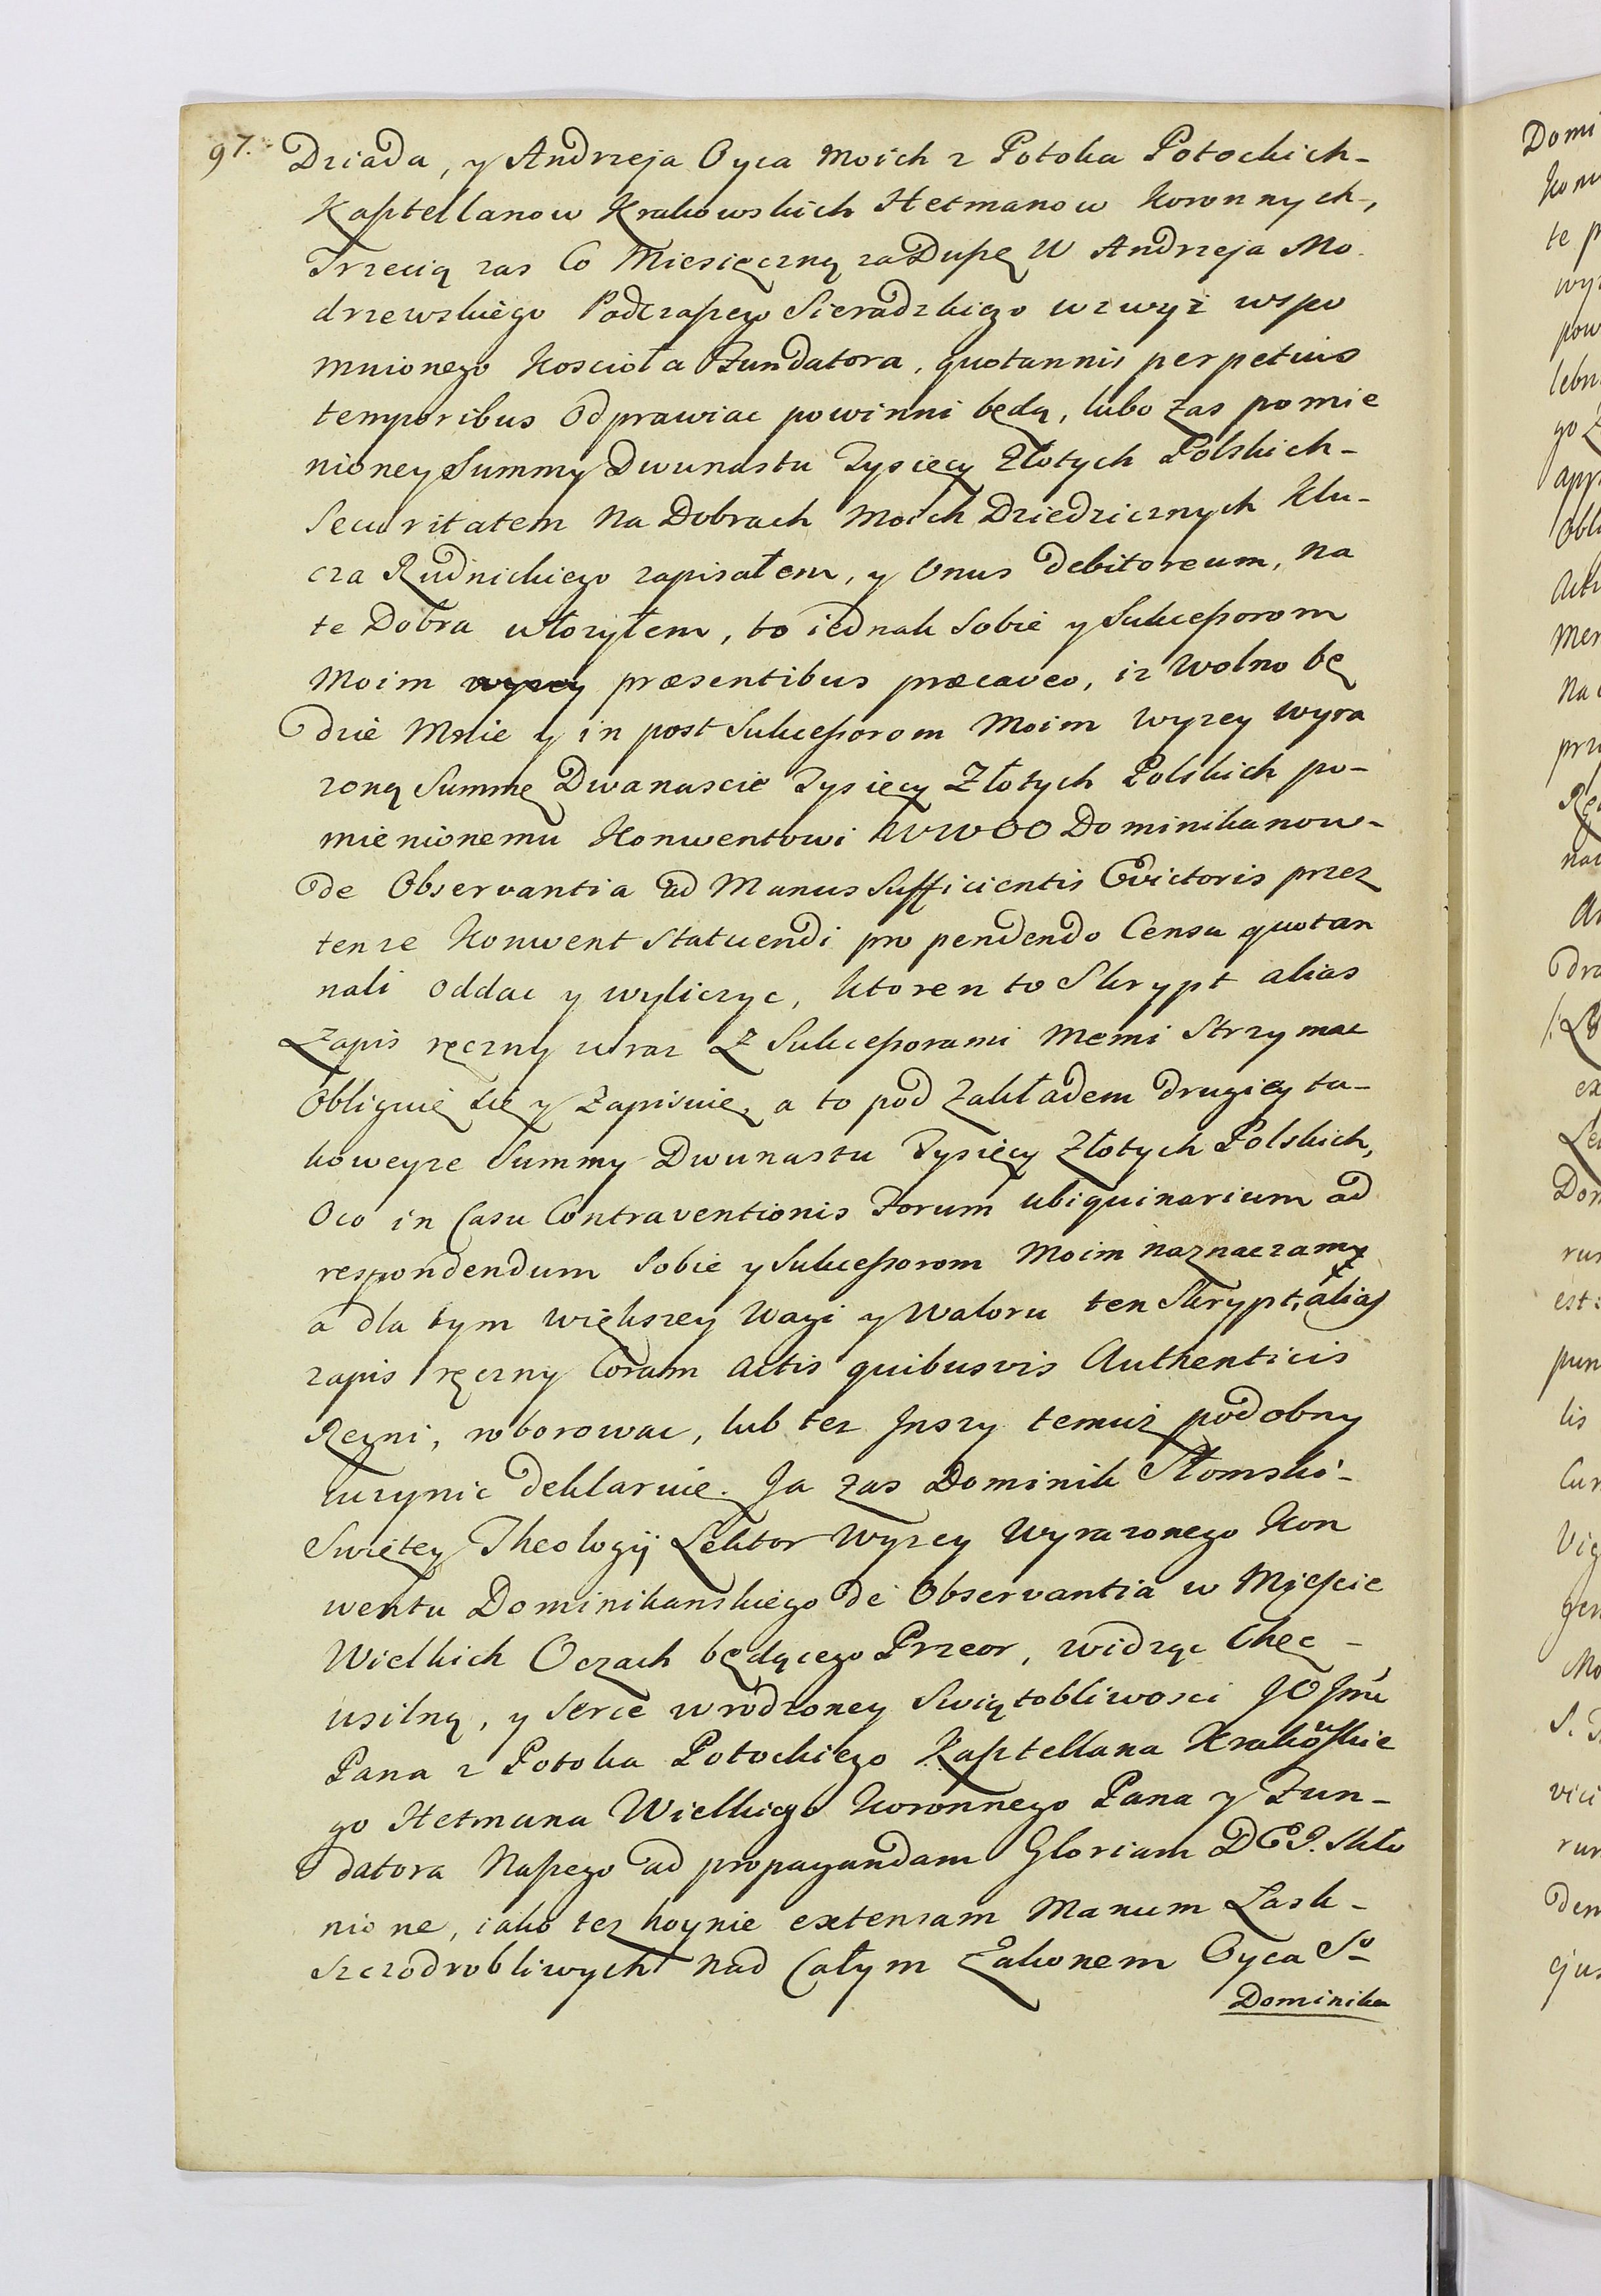 97. Dziada, y Andrzeja Oyca Moich z Potoka Potockich-
Kasztellanow Krakowskich Hetmanow Koronnych-,
Trzecią zas Co Miesięczną za Duszę W Andrzeja Mo-
drzewskiego Podczaszego Sieradzkiego wzwyż wspo
mnionego Kościoła Fundatora, quotannis perpetuis
temporibus Odprawiac powinni będą, lubo zas pomie
nioney Summy Dwunastu Tysięcy Złotych Polskich-
Securitatem na Dobrach Moich Dziedzicznych Klu-
cza Rudnickiego zapisałem, y Onus debitoreum, na
te Dobra włożyłem, to iednak Sobie y Sukceszorom
Moim præsentibus præcaveo, iz Wolno bę
dzie Mnie y in post Sukceszorom Moim wyzey wyra
zoną Summę Dwanascie Tysięcy Złotych Polskich po-
mienionemu Konwentowi WWOO Dominikanow-
de Observantia ad Manus Sufficientis Evictoris przez
tenze Konwent Statuendi pro pendendo Censu quotan
nali oddac y wyliczyc, ktoren to Skrypt alias
Zapis ręczny wraz Z Sukceszorami Memi Strzymac
Obliguię się y Zapisuię, a to pod Zakładem drugiey ta-
koweyze Summy Dwunastu Tysięcy Złotych Polskich,
Oco in Casu Contraventionis Forum ubiquinarium ad
respondendum Sobie y Sukceszorom Moim naznaczamy
a dla tym większey Wagi y Waloru ten Skrypt, alias
zapis ręczny Coram Actis quibusvis Authenticis
Regni, roborowac, lub tez Inszy temuż podobny
uczynic deklaruię. Ja zas Dominik Słomski-
Swiętey Theologij Lektor Wyzey Wyrazonego Kon
wentu Dominikanskiego de Observantia w Mieście
Wielkich Oczach będącego Przeor, widząc Chęc-
usilną, y serce wrodzoney Swiątobliwosci JO Jmci
Pana z Potoka Potockiego Kasztellana Krakowskie
go Hetmana Wielkiego Koronnego Pana y Fun-
datora Naszego ad propagandam Gloriam DEI. Skło
nione, iako tez hoynie extensam Manum Łask-
Szczodrobliwych nad Całym Zakonem Oyca So
Dominika
Domi
te p
wyr
pow
lebn
go Z
app
Obli
Mer
Na
prz
na
dra
ex
Dom
rum
est:
pun
lis
Cur
Vig
gen
Mo
vici
rum
den
ejus